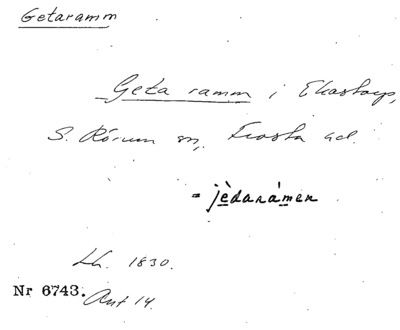 Getaramm
Geta ramm i Ekastorp,
S. Rörum sn, Frosta hd.
= jèdarámen
Lh. 1830.
Nr 6743. Ant 14.